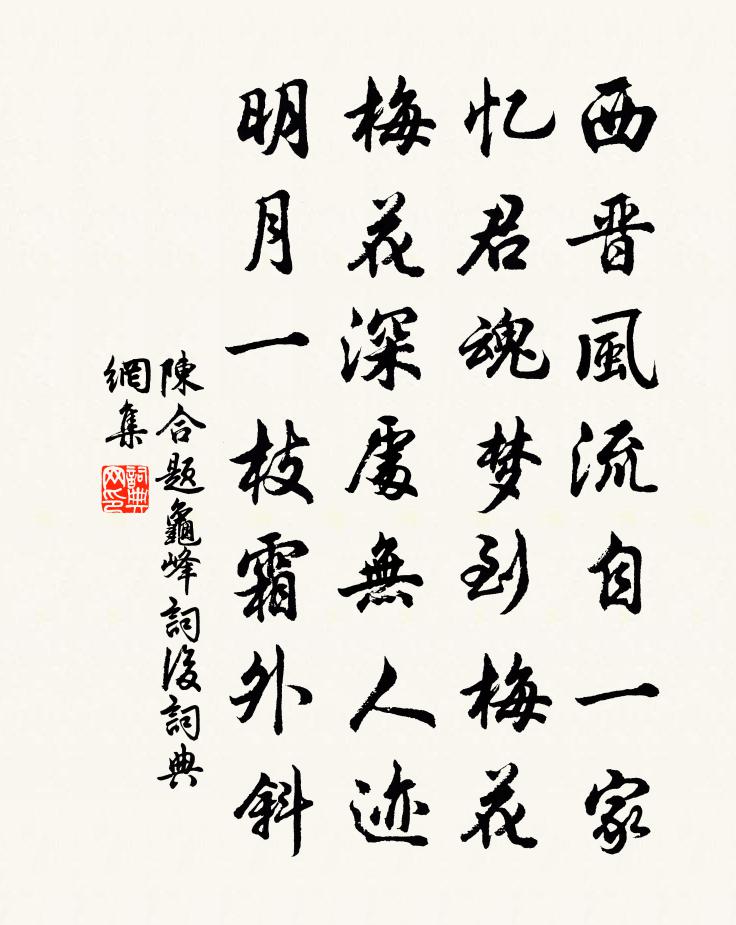 西晋風流自一家
忆君魂梦到梅花
梅花深處無人迹
明月一枝霜外斜
陳合題龜峰詞後詞典
網集
詞典
网印